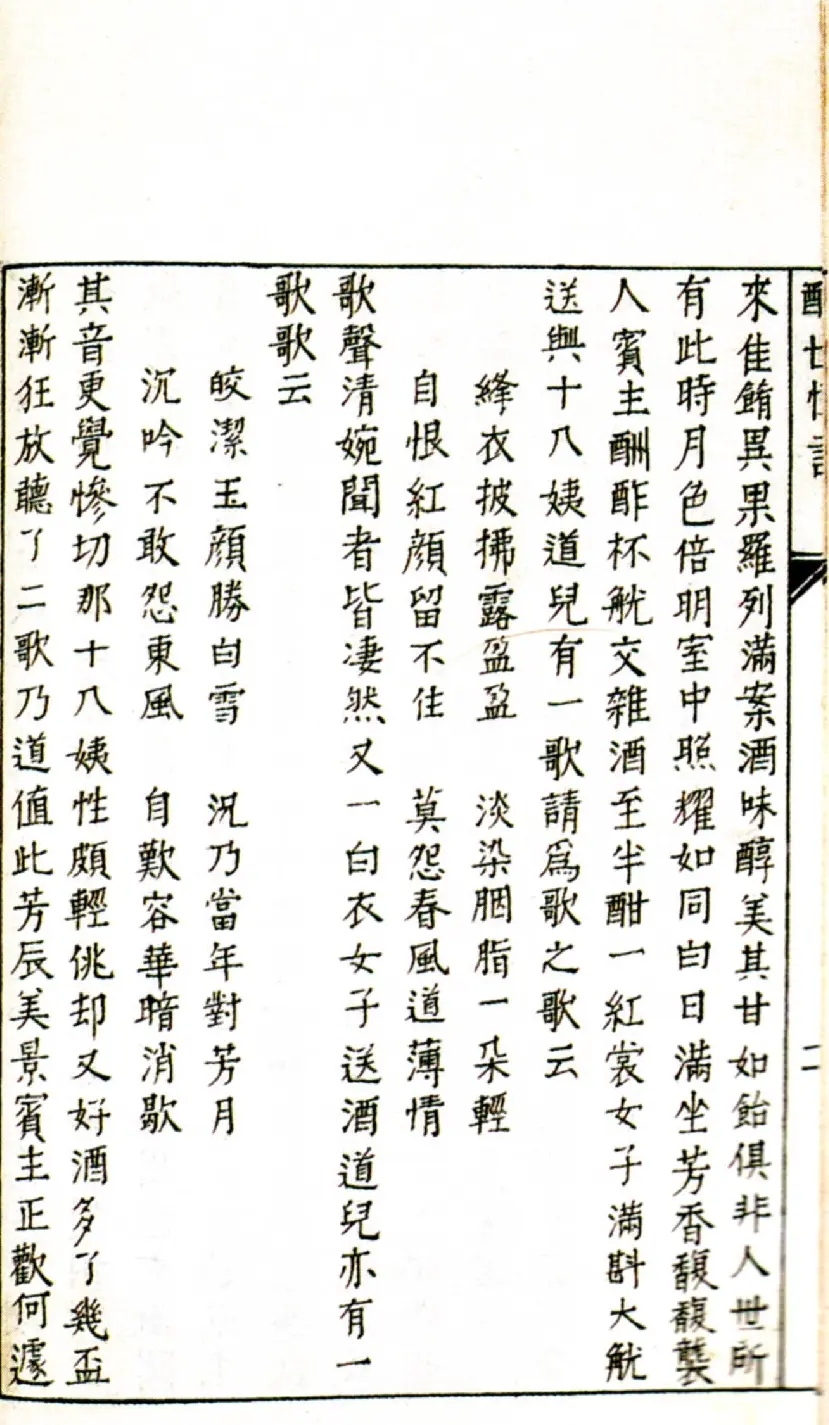 來佳餚異果羅列滿案酒味醇美其甘如飴俱非人世所
有此時月色倍明室中照耀如同白日滿坐芳香馥馥襲
人賓主酬酢杯觥交雜酒至半酣一紅裳女子滿斟大觥
送與十八姨道兒有一歌請爲歌之歌云
絳衣披拂露盈盈 淡染胭脂一朵輕
自恨紅顔留不住 莫怨春風道薄情
歌聲清婉聞者皆凄然又一白衣女子送酒道兒亦有一
歌歌云
皎潔玉顔勝白雪 況乃當年對芳月
沉吟不敢怨東風 自歎容華暗消歇
其音更覺慘切那十八姨性頗輕佻却又好酒多了幾盃
漸漸狂放聽了二歌乃道值此芳辰美景賓主正歡何遽
二